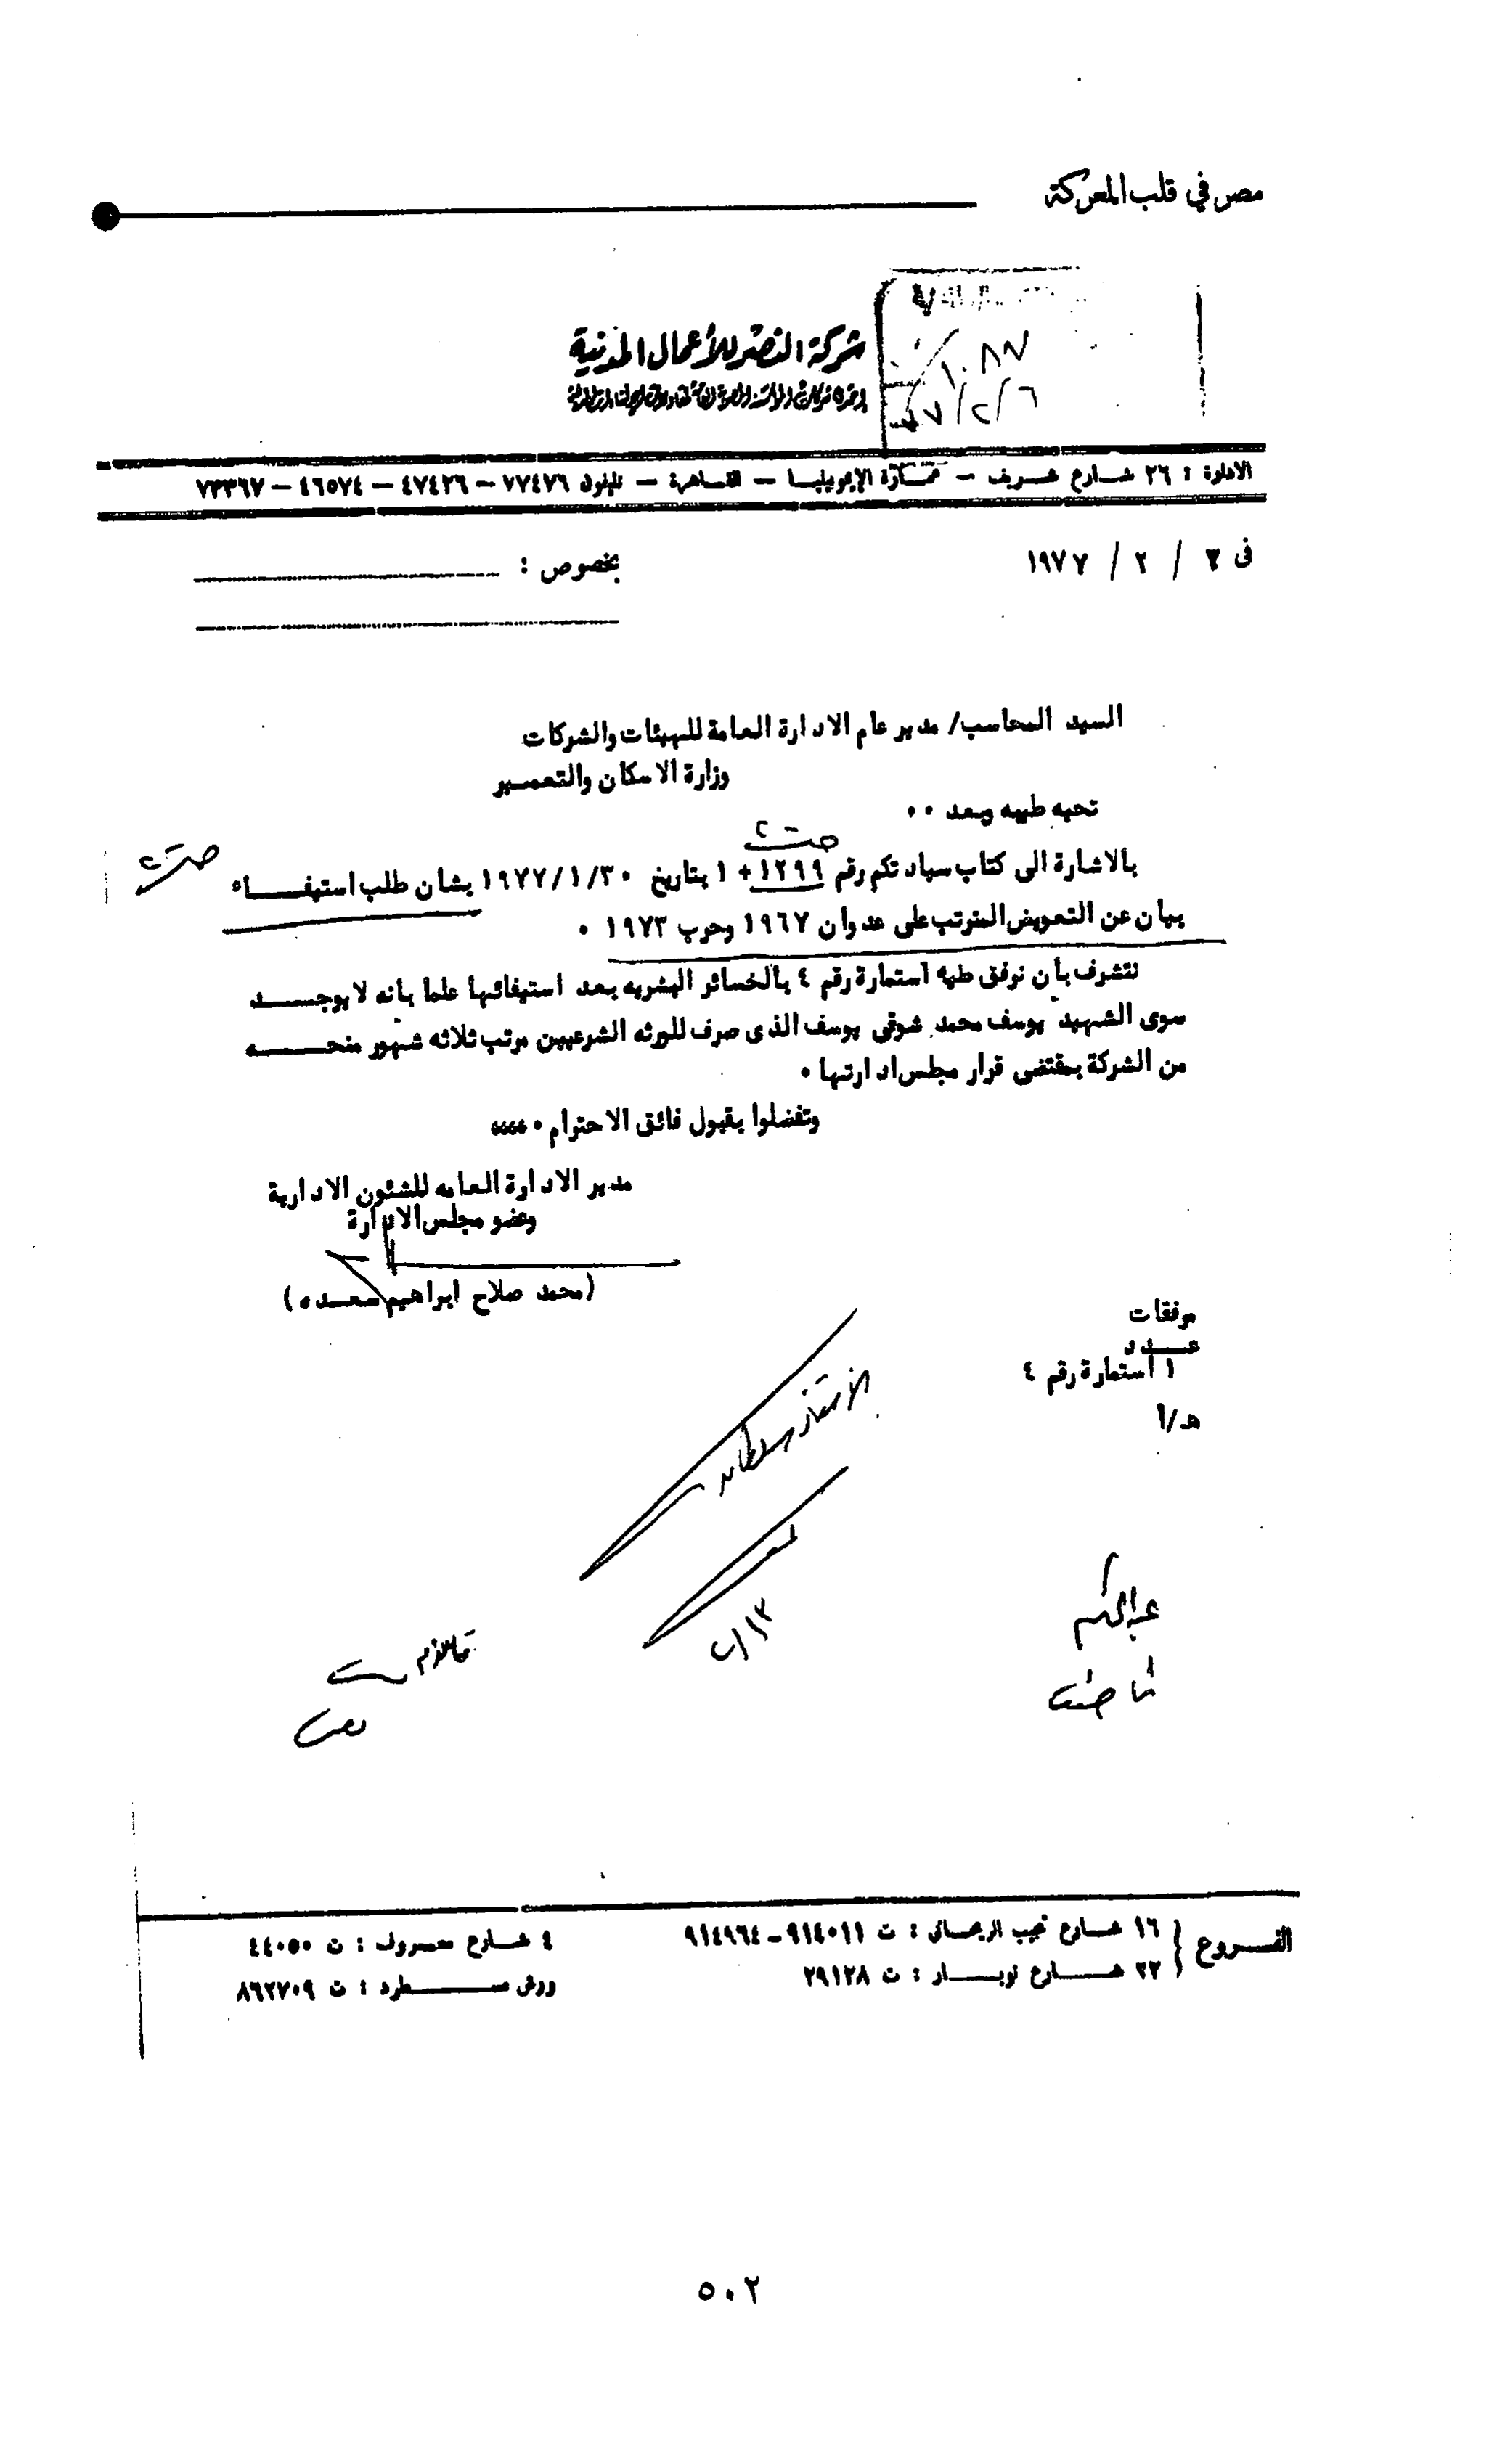 مصر في قلب المعركة
شركة النصر للأعمال المدنية
١٠٨٧
٧٧/٢/٦
الادارة : ٢٦ شارع شريف – عمارة الإيموبيليا – القاهرة – تليفون ٧٧٤٧٦ – ٤٧٤٢٦ – ٤٦٥٧٤ – ٧٣٣٦٧
فى ٣ / ٢ / ١٩٧٧
بخصوص :
السيد المحاسب/ مدير عام الادارة العامة للهيئات والشركات
وزارة الاسكان والتعمير
تحيه طيبه وبعد ٠٠
بالاشارة الى كتاب سيادتكم رقم ١٢٩٩ + ١ بتاريخ ١٩٧٧/١/٣٠ بشان طلب استيفاء
بيان عن التعويض المترتب على عدوان ١٩٦٧ وحرب ١٩٧٣ ٠
نتشرف بأن نوفق طيه استمارة رقم ٤ بالخسائر البشريه بعد استيفائها علما بانه لا يوجد
سوى الشهيد يوسف محمد شوقى يوسف الذى صرف للورثه الشرعيين مرتب ثلاثه شهور منحه
من الشركة بمقتضى قرار مجلس ادارتها ٠
وتفضلوا بقبول فائق الاحترام ٠
مدير الادارة العامه للشئون الادارية
وعضو مجلس الادارة
(محمد صلاح ابراهيم سعده)
مرفقات
عدد
١ استمارة رقم ٤
هـ/أ
الأستاذ سلطان
٢/١٣
الفروع
١٦ شارع نجيب الريحانى : ت ٩١٤٠١١ – ٩١٤٩٦٤
٤ شارع معروف : ت ٤٤٠٥٠
٢٢ شارع نوبار : ت ٢٩١٢٨
ورش مسطرد : ت ٨٦٢٧٠٩
٥٠٢